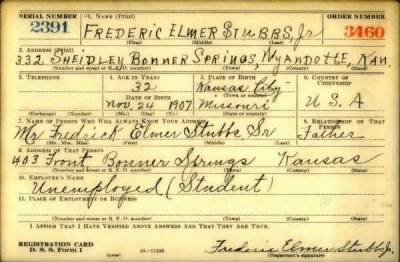 SERIAL NUMBER 1. NAME (Print) ORDER NUMBER
2391 FREDERIC ELMER STUBBS, Jr 3460
(First) (Middle) (Last)
2. ADDRESS (Print)
332 SHEIDLEY BONNER SPRINGS, WYANDOTTE, KAN.
(Number and street or R. F. D. number) (Town) (County) (State)
3. TELEPHONE 4. AGE IN YEARS 5. PLACE OF BIRTH 6. COUNTRY OF CITIZENSHIP
32 Kansas City
DATE OF BIRTH (Town or county)
Nov. 24 1907 Missouri U.S.A
(Exchange) (Number) (Mo.) (Day) (Yr.) (State or country)
7. NAME OF PERSON WHO WILL ALWAYS KNOW YOUR ADDRESS 8. RELATIONSHIP OF THAT PERSON
Mr Fredrick Elmer Stubbs Sr Father
(Mr., Mrs., Miss) (First) (Middle) (Last)
9. ADDRESS OF THAT PERSON
403 Front Bonner Springs Kansas
(Number and street or R. F. D. number) (Town) (County) (State)
10. EMPLOYER'S NAME
Unemployed (Student)
11. PLACE OF EMPLOYMENT OR BUSINESS
(Number and street or R. F. D. number) (Town) (County) (State)
I AFFIRM THAT I HAVE VERIFIED ABOVE ANSWERS AND THAT THEY ARE TRUE.
REGISTRATION CARD
D. S. S. Form 1 Frederic Elmer Stubbs Jr.
(Registrant's signature)